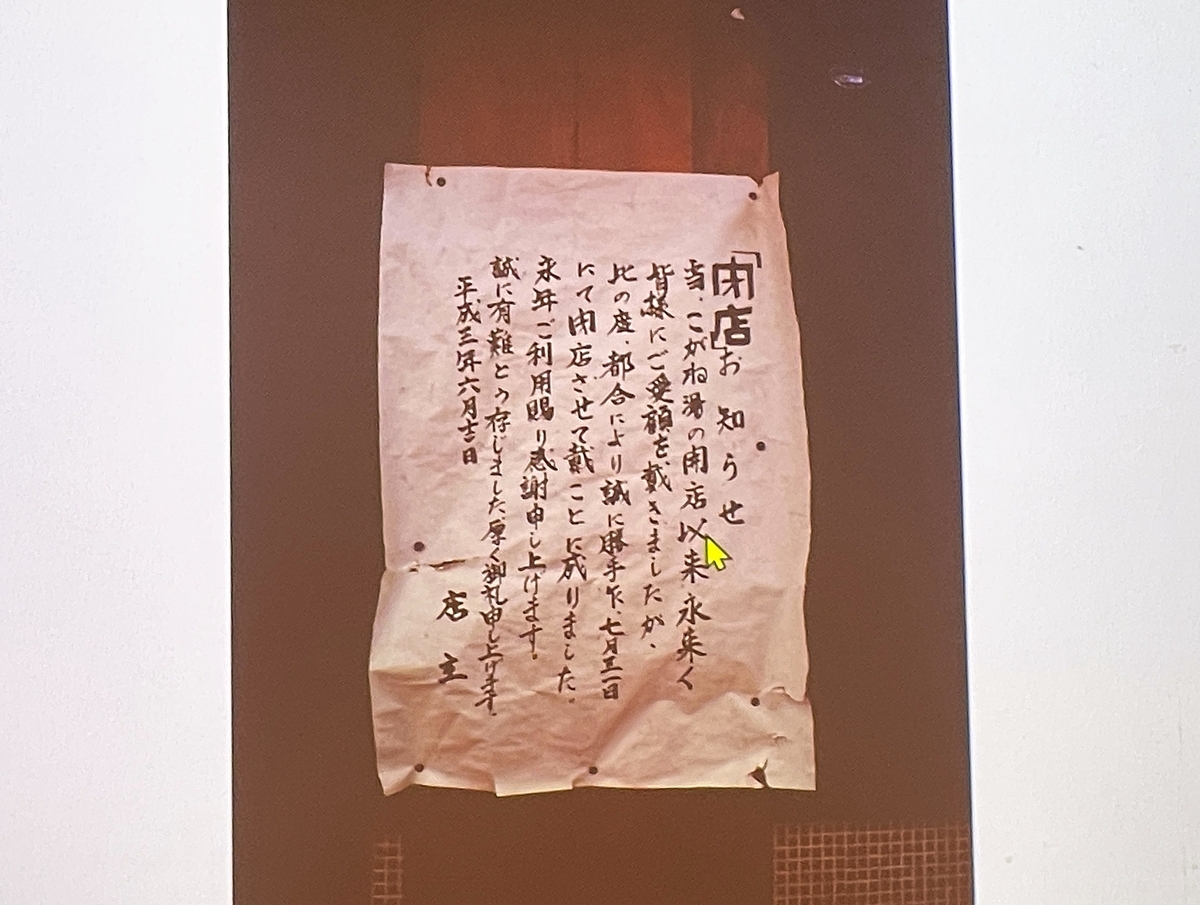 「閉店」お知らせ
当、こがね湯の開店以来永来く
皆様にご愛顧を戴きましたが、
此の度、都合により誠に勝手乍、七月三一日
にて閉店させて戴ことに成りました。
永年ご利用賜り感謝申し上げます。
誠に有難とう存じました、厚く御礼申し上げます。
平成三年六月吉日
店主